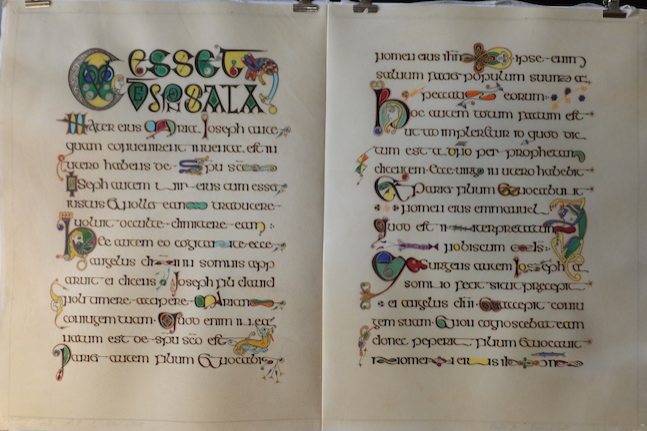 C ESSET
DESPONSATA
Mater eius Maria Joseph ante
quam convenirent inventa est in
utero habens de spu sco
Joseph autem vir eius cum esset
iustus & nollet eam traducere
voluit occulte dimittere eam
haec autem eo cogitante ecce
angelus dni in somnis app
aruit ei dicens Joseph fili david
noli timere accipere Mariam
coniugem tuam Quod enim in ea
natum est de spu sco est
Pariet autem filium & vocabis
nomen eius ihm ipse enim
salvum faciet populum suum a
peccatis eorum
hoc autem totum factum est
ut adimpleretur id quod dic
tum est a dno per prophetam
dicentem Ecce virgo in utero habebit
& pariet filium & vocabit
nomen eius emmanuel
Quod est interpretatum
nobiscum
Exsurgens autem Joseph a
somno fecit sicut precepit
ei angelus dni & accepit coniu
gem suam & non cognoscebat eam
donec peperit filium & vocavit
nomen eius